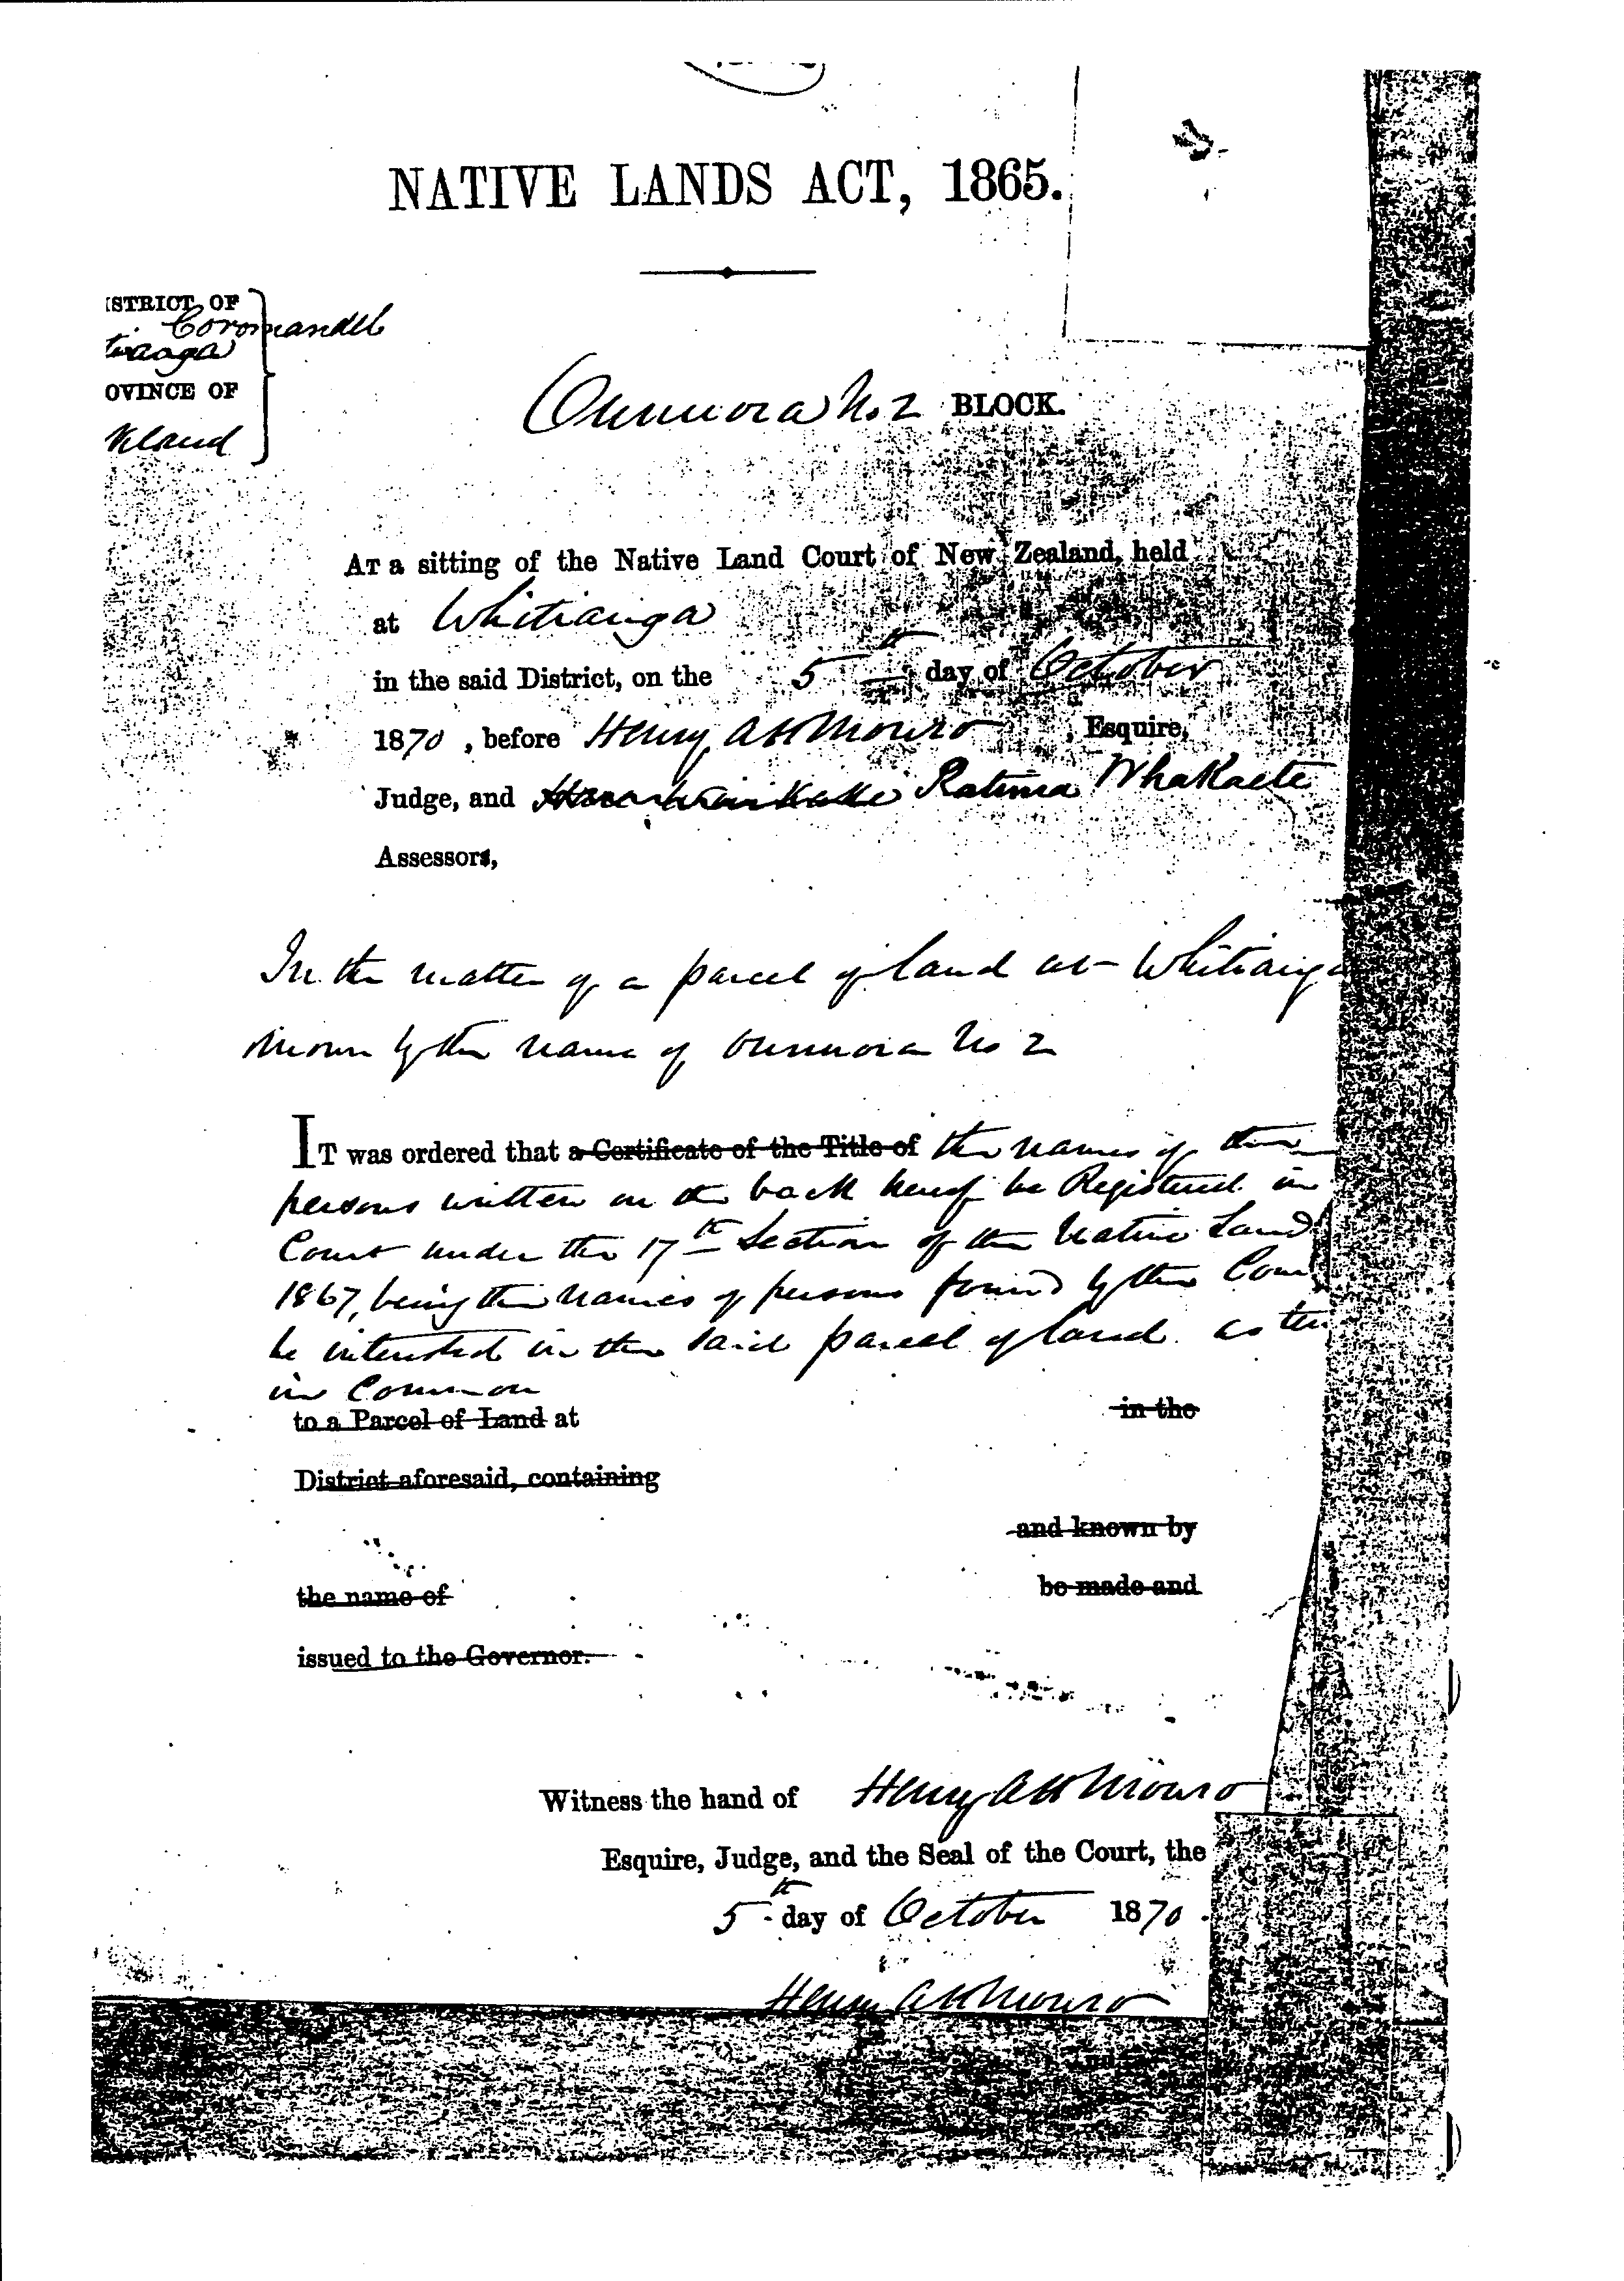 NATIVE LANDS ACT, 1865.
ISTRICT OF
Coromandel
tianga
OVINCE OF
kland
Ounuora No 2 BLOCK.
AT a sitting of the Native Land Court of New Zealand, held
at Whitianga
in the said District, on the 5th day of October
1870, before Henry A H Monro, Esquire,
Judge, and Ratima Whakaete
Assessors,
In the matter of a parcel of land at Whitianga
known by the name of Ounuora No 2
IT was ordered that a Certificate of the Title of the names of the
persons written on the back hereof be Registered in
Court under the 17th Section of the Native Land
1867, being the names of persons found by the Cour
be interested in the said parcel of land as ten
in Common
to a Parcel of Land at in the
District aforesaid, containing
and known by
the name of be made and
issued to the Governor.
Witness the hand of Henry A H Monro
Esquire, Judge, and the Seal of the Court, the
5th day of October 1870.
Henry A H Monro